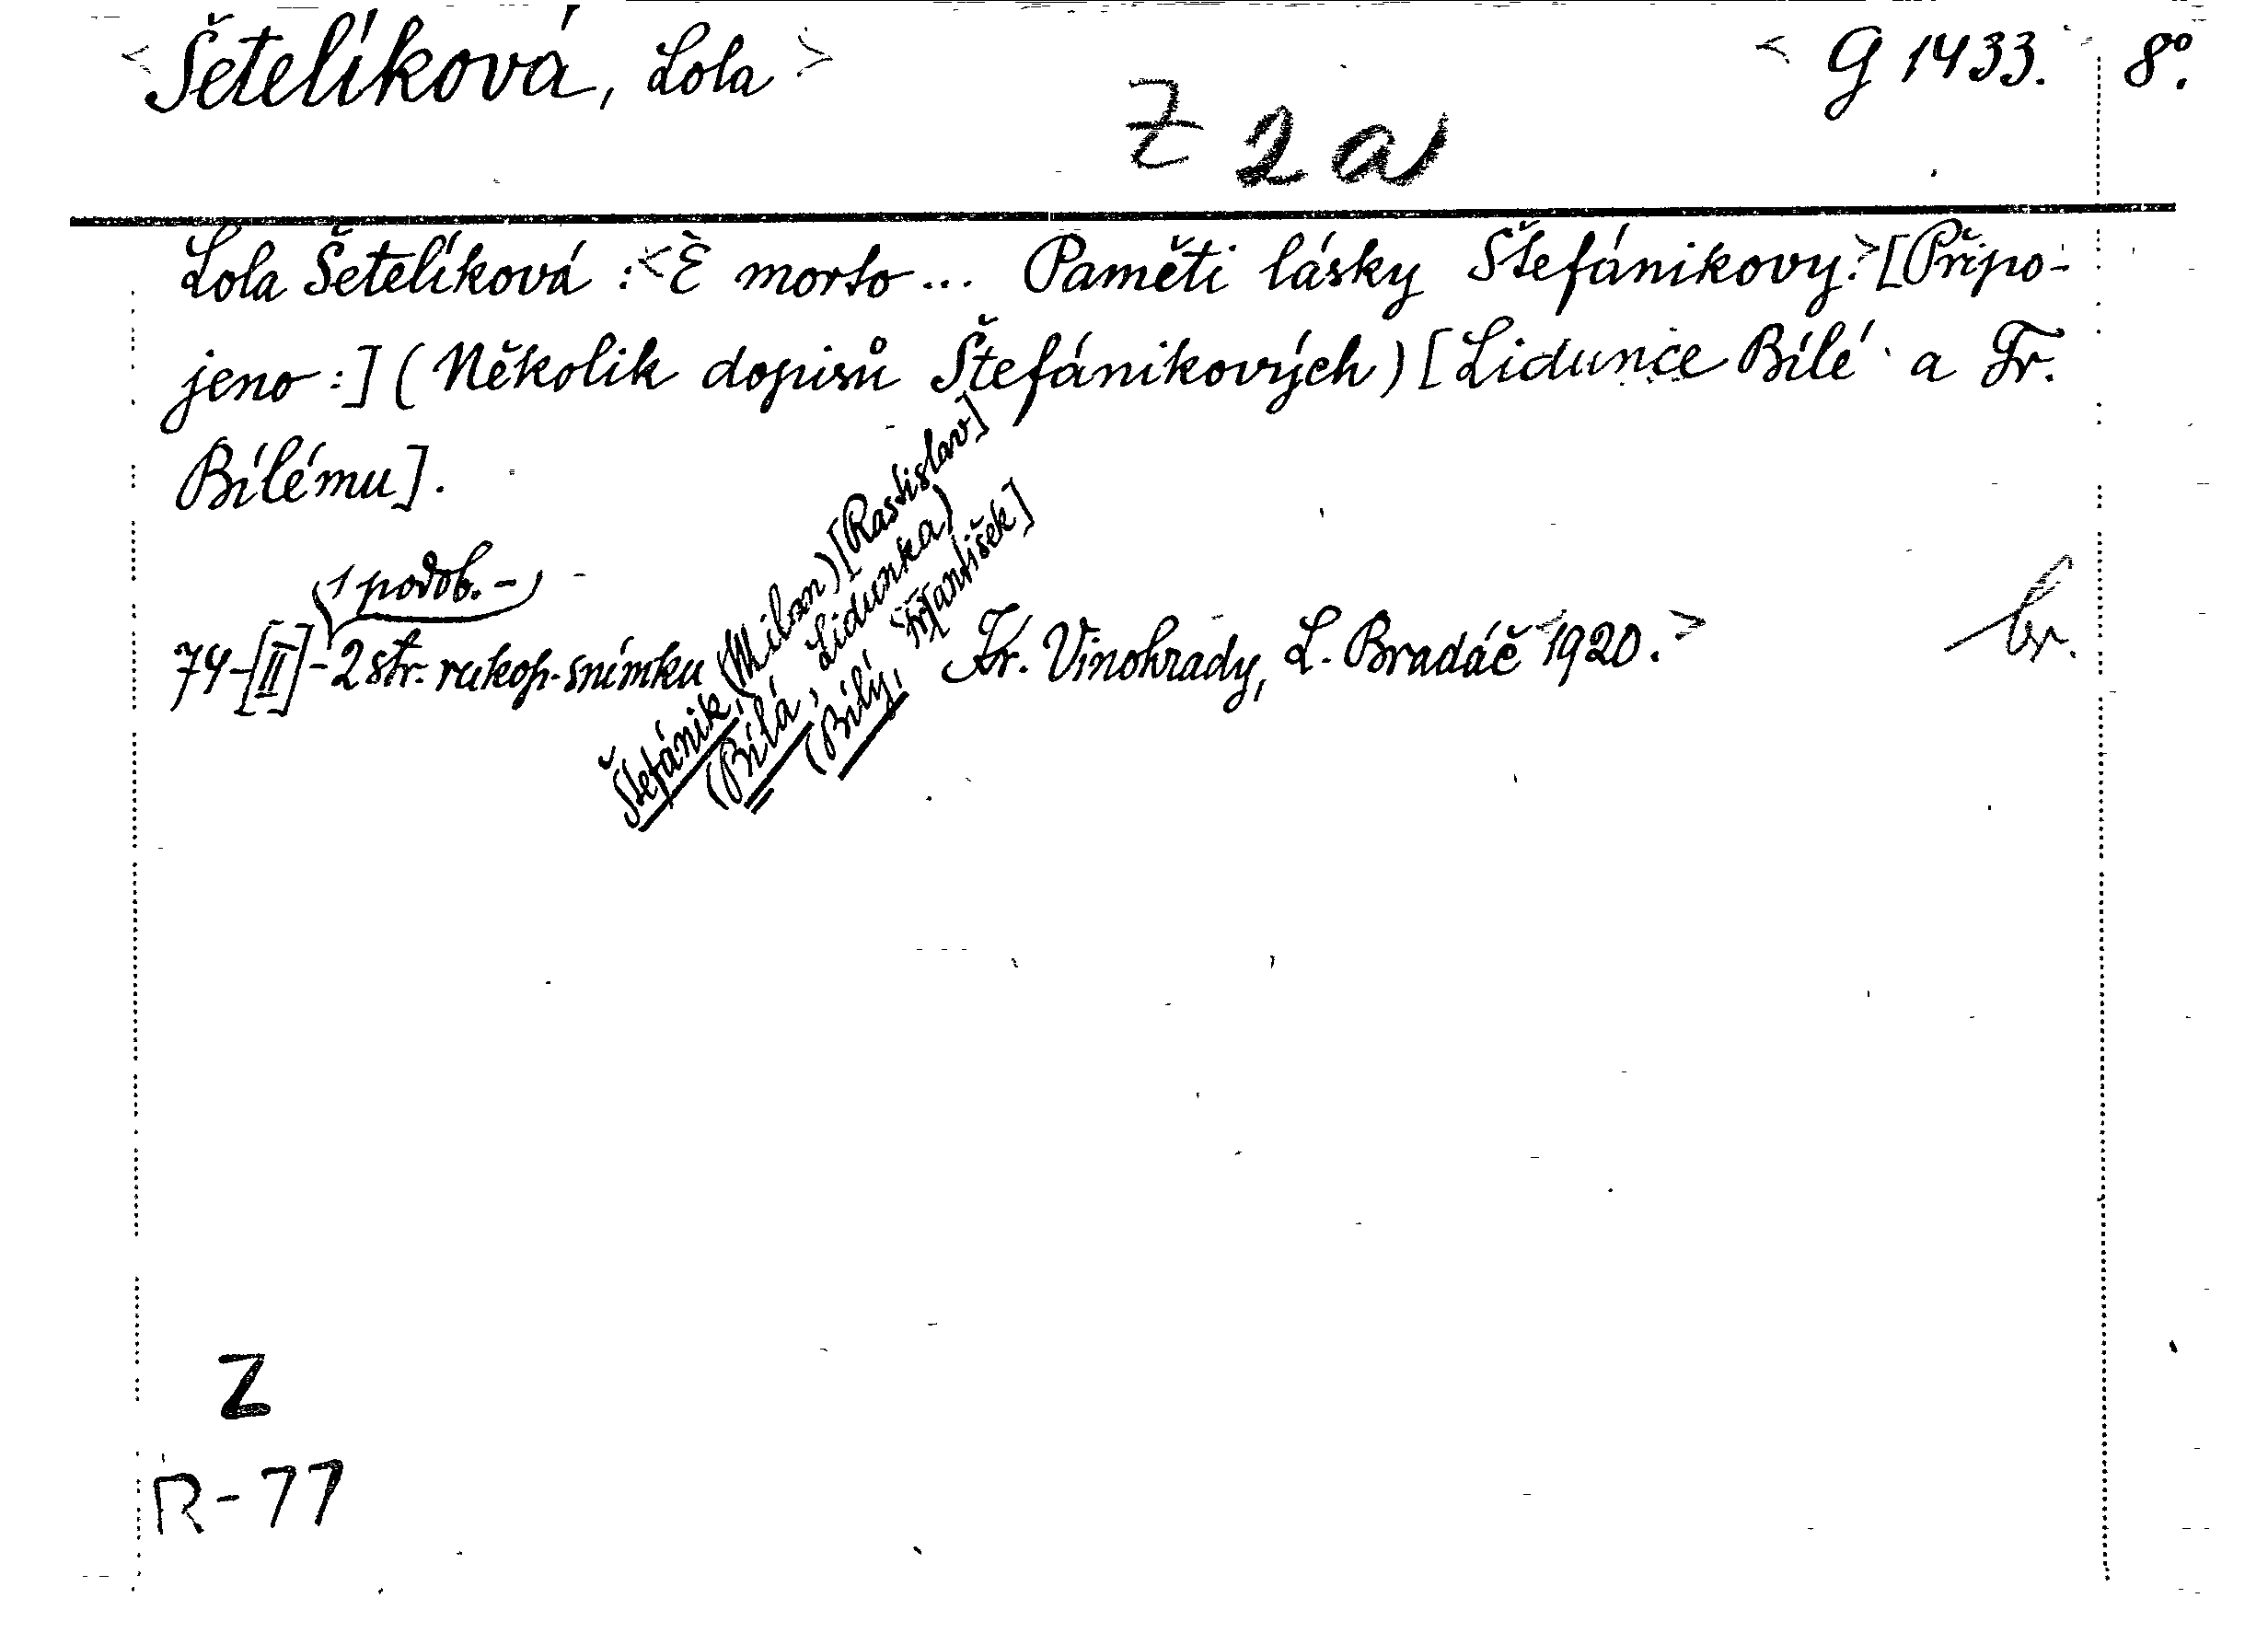 <Šetelíková, Lola> <G 1433. 8°.
Z 2a
Lola Šetelíková : <È morto... Paměti lásky Štefánikovy.> [Připo-
jeno :] (Několik dopisů Štefánikových) [Lidunce Bílé a Fr.
Bílému].
1 podob. -
74-[II]-2 str. rukop. snímku Kr. Vinohrady, L. Bradáč <1920.> br.
Štefánik, (Milan) [Rastislav]
(Bílá, Lidunka)
(Bílý, Fr[antišek]
Z
R-77